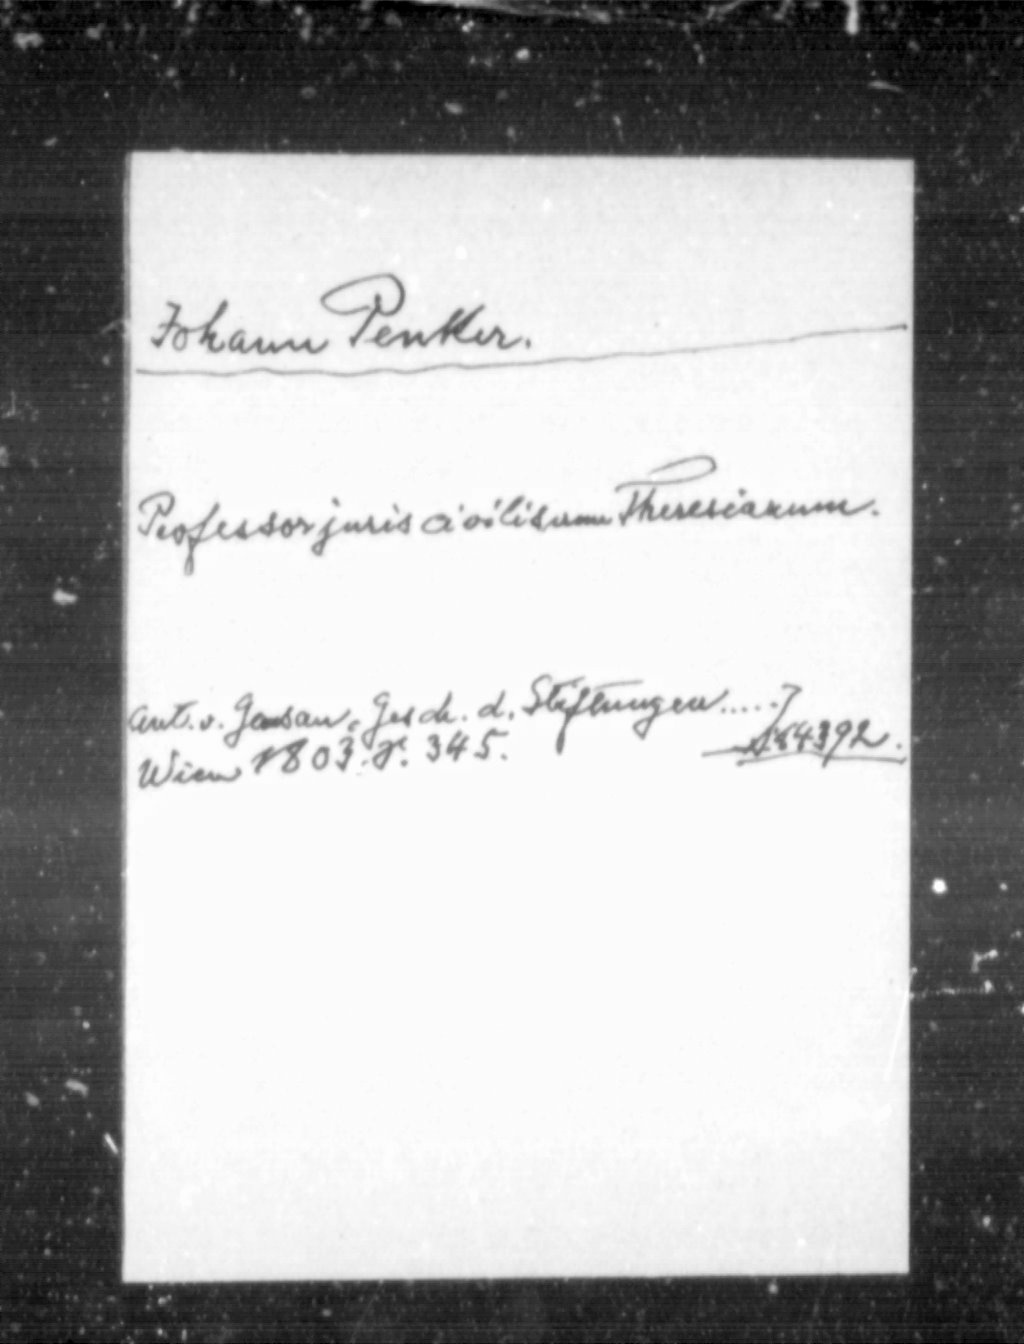 Johann Penkler.
Professor juris civilis am Theresianum.
Ant. v. Geusau, Gesch. d. Stiftungen.....,
Wien 1803. S. 345.
A 84392.